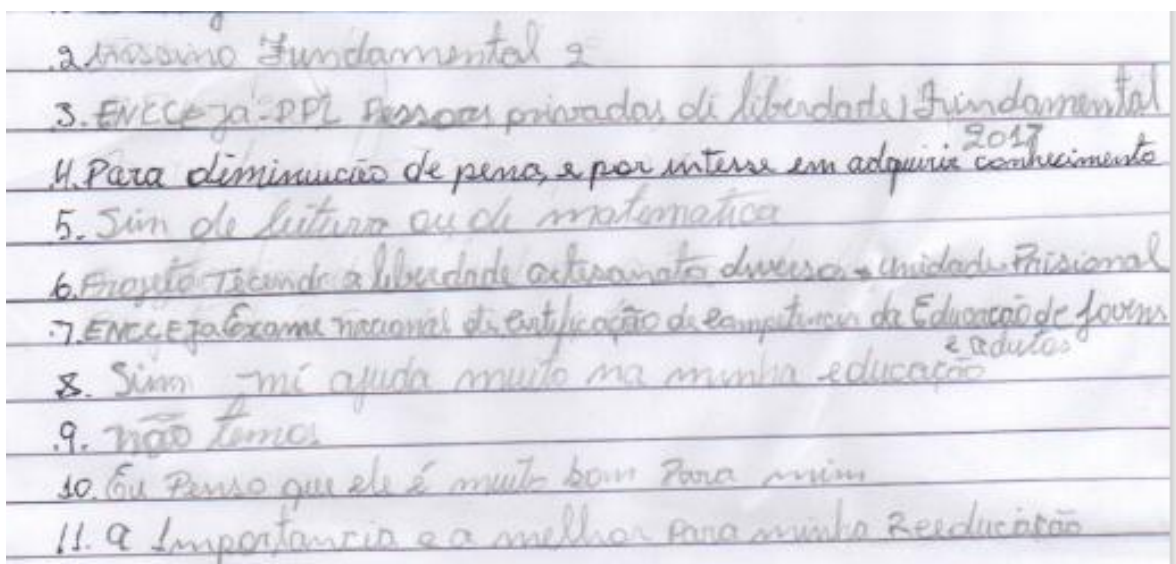 2 Enssino Fundamental 2
3. ENCCEJA-PPL Pessoas privadas di liberdade, Fundamental
2017
4. Para diminuucão de pena, e por intesse em adquirir conhecimento
5. Sim de leitura ou de matematica
6. Projeto Tecendo a liberdade artesanato diverso unidade Prisional
.7. ENCCEJA Exame nacional di certificação de competencias da Educacão de Jovens
e adutos
8. Sim mi ajuda muito na minha educação
.9. não temos
10. Eu Penso que ele é muito bom Para mim
11. a Importancia e a melhor para minha Reeducacão